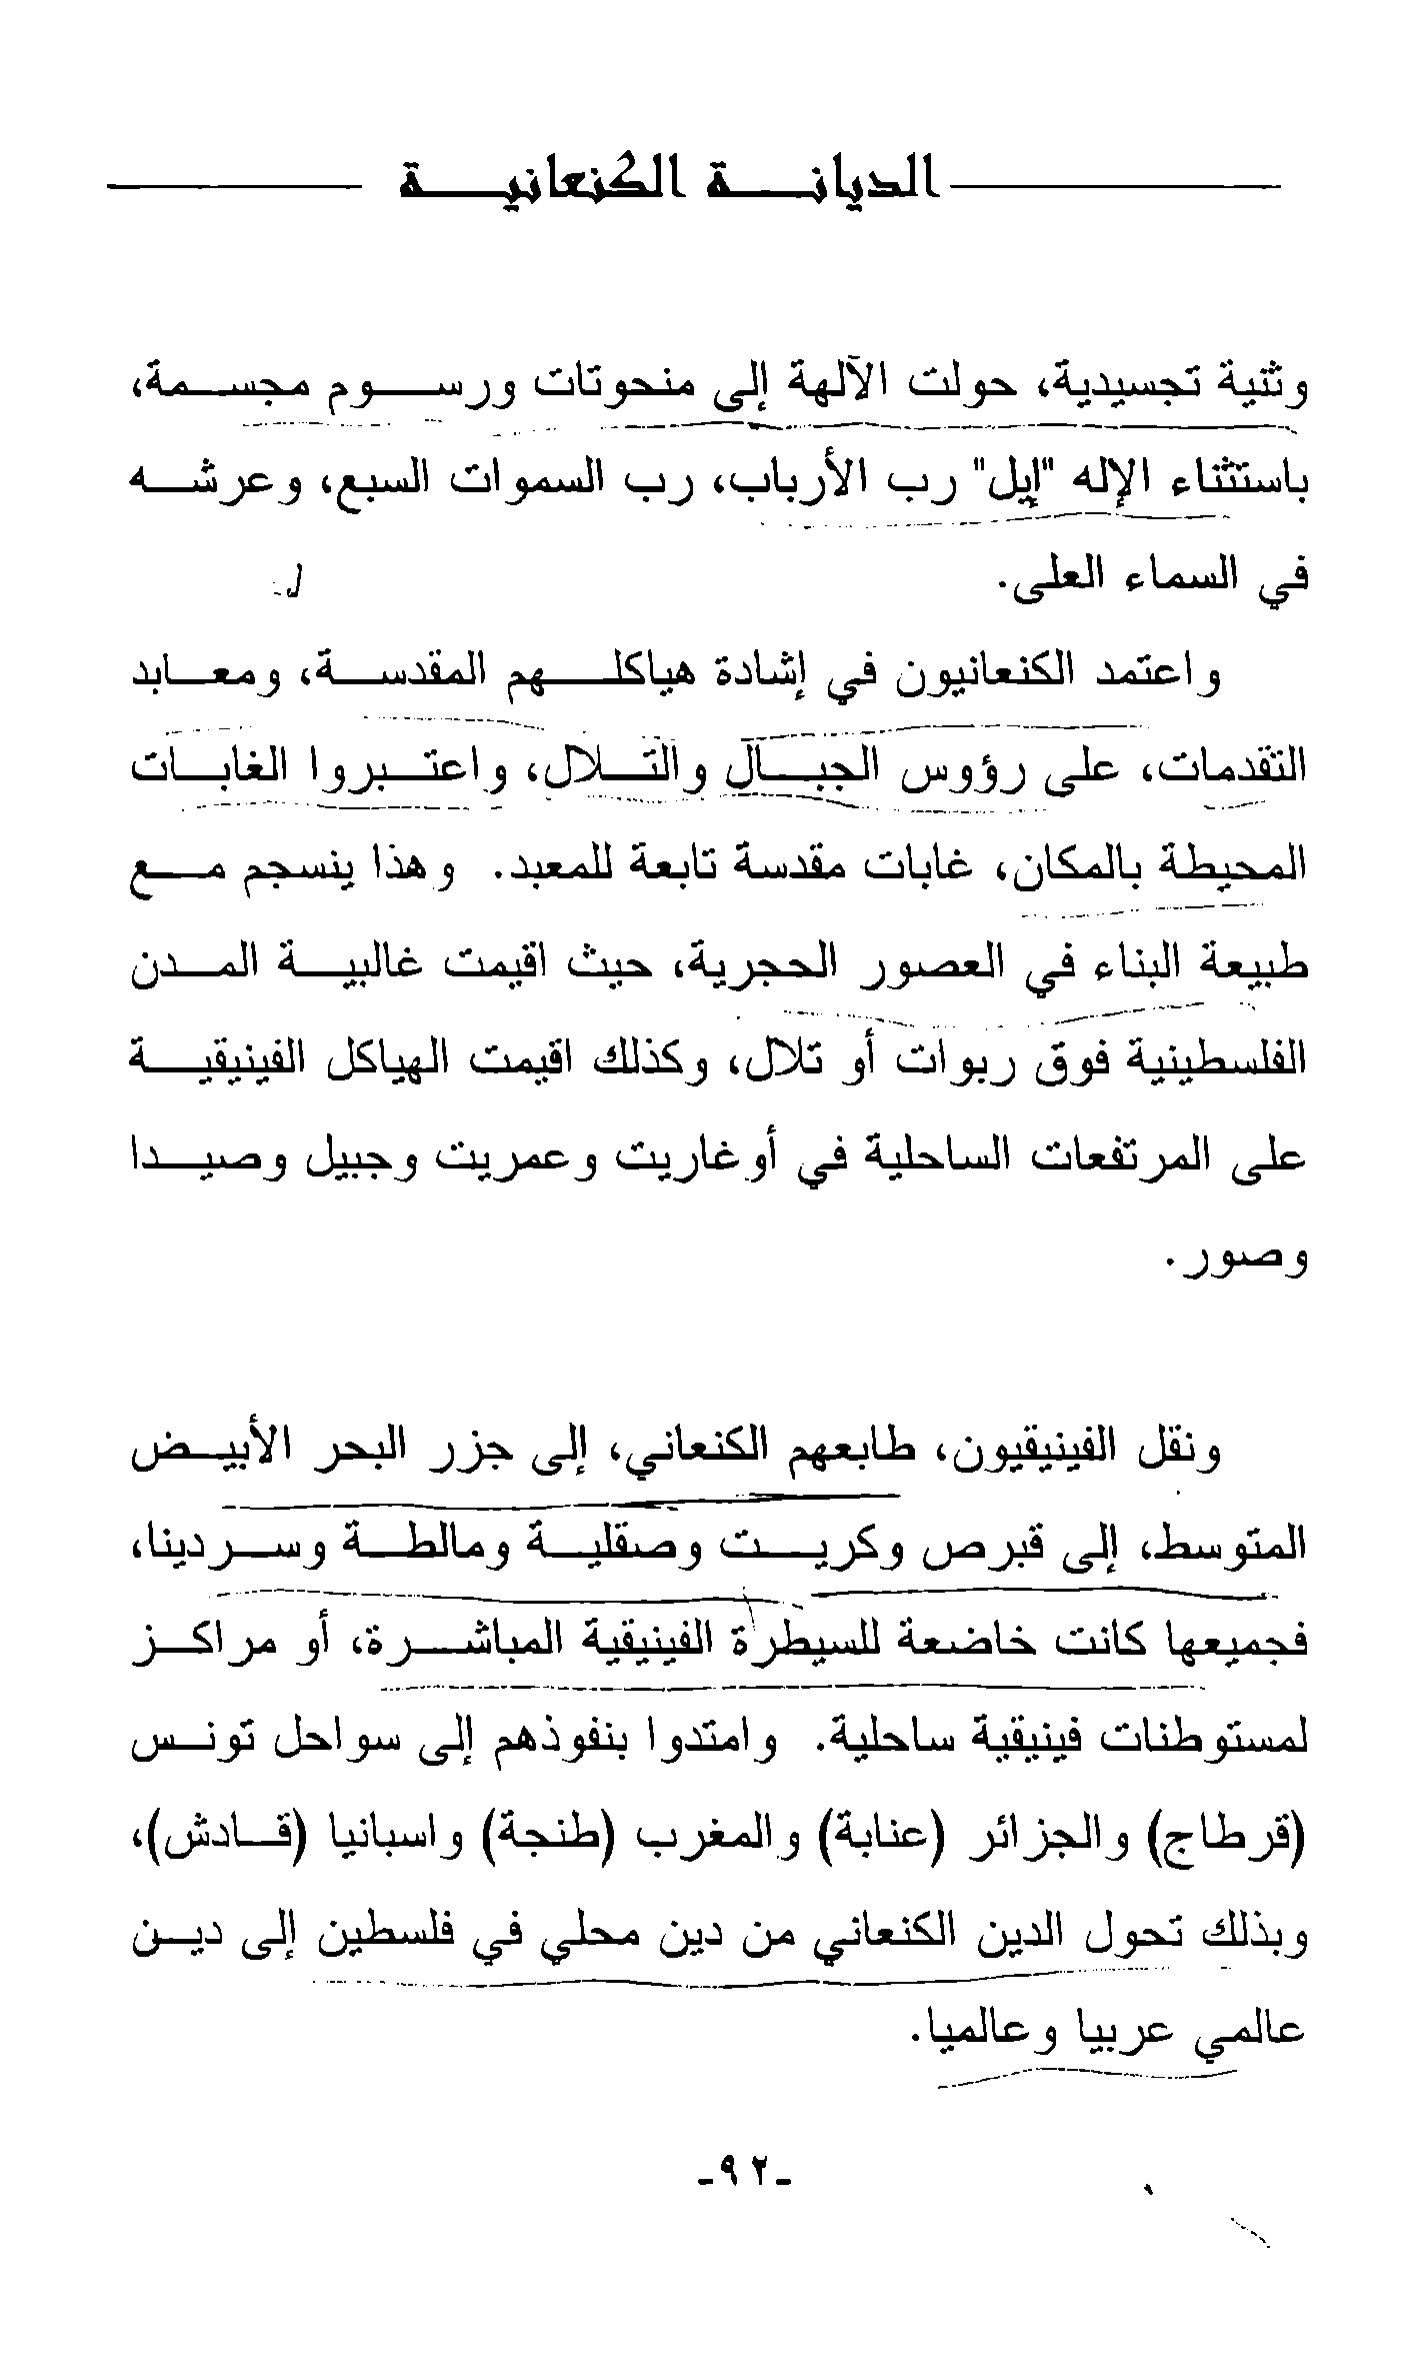 الديانة الكنعانية
وثنية تجسيدية، حولت الآلهة إلى منحوتات ورسوم مجسمة،
باستثناء الإله "إيل" رب الأرباب، رب السموات السبع، وعرشه
في السماء العلى.
واعتمد الكنعانيون في إشادة هياكلهم المقدسة، ومعابد
التقدمات، على رؤوس الجبال والتلال، واعتبروا الغابات
المحيطة بالمكان، غابات مقدسة تابعة للمعبد. وهذا ينسجم مع
طبيعة البناء في العصور الحجرية، حيث اقيمت غالبية المدن
الفلسطينية فوق ربوات أو تلال، وكذلك اقيمت الهياكل الفينيقية
على المرتفعات الساحلية في أوغاريت وعمريت وجبيل وصيدا
وصور.
ونقل الفينيقيون، طابعهم الكنعاني، إلى جزر البحر الأبيض
المتوسط، إلى قبرص وكريت وصقلية ومالطة وسردينا،
فجميعها كانت خاضعة للسيطرة الفينيقية المباشرة، أو مراكز
لمستوطنات فينيقية ساحلية. وامتدوا بنفوذهم إلى سواحل تونس
(قرطاج) والجزائر (عنابة) والمغرب (طنجة) واسبانيا (قادش)،
وبذلك تحول الدين الكنعاني من دين محلي في فلسطين إلى دين
عالمي عربيا وعالميا.
-٩٢-